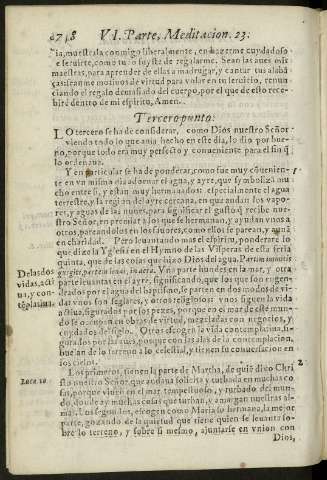 678 VI. Parte, Meditacion. 23.
cia, muestrala conmigo liberalmente, en hazerme cuydadoso
e seruirte, como tu lo fuyste de regalarme. Sean las aues mis
maestras, para aprender de ellas a madrugar, y cantar tus alabã-
ças: sean me motiuos de virtud para volar en tu seruicio, renun-
ciando el regalo demasiado del cuerpo, por el que de esto rece-
biré dentro de mi espiritu, Amen.
Tercero punto:
LO tercero se ha de considerar, como Dios nuestro Señor
viendo todo lo que auia hecho en este dia, lo dio por bue-
no, porque todo era muy perfecto y conueniente para el fin q̃
lo ordenaua.
Y en particular se ha de ponderar, como fue muy cõuenien-
te en vn misma dia adornar el agua, y ayre, que symboliza mu-
cho entre si, y estan muy hermanados: especialmente el agua
terrestre, y la region del ayre cercana, en que andan los vapo-
res, y aguas de las nuues, para significar el gusto q̃ recibe nues-
tro Señor, en premiar a los que se hermanan, y ayudan vnos a
otros, pareandolos en los fauores, como ellos se parean, y aunã
en charidad. Pero leuantando mas el espiritu, ponderare lo
que dize la Yglesia en el Hymno de las Visperas de esta feria
quinta, que de las cosas que hizo Dios del agua. Partim remittis
gurgiti, partim leuas in aera. Vna parte hundes en la mar, y otra
parte leuantas en el ayre, significando, que los que son engen-
drados por el agua del baptismo, se parten en dos modos de vi-
da: vnos son seglares, y otros religiosos: vnos siguen la vida
actiua, figurados por los pezes, porque en el mar de este mun-
do se ocupan en obras de virtud, mezcladas con negocios, y
cuydados del siglo. Otros escogen la vida contemplatiua, fi-
gurados por las aues, porque con las alas de la contemplacion,
buelan de lo terreno a lo celestial, y tienen su conuersacion en
los cielos.
Los primeros, tienen la parte de Martha, de quiẽ dixo Chri
sto nuestro Señor, que andaua solicita y turbada en muchas co
sas, porque viuen en el mar tempestuoso, y turbado del mun-
do, donde ay muchas cosas que turban, y amargan nuestras al-
mas. Los segundos, escogen como Maria su hermana, la mejor
parte, gozando de la quietud que tiene quien se leuanta so-
bre lo terreno, y sobre si mesmo, ajuntarse en vnion con
Dios,
1
De las dos
vidas, acti
ua, y con-
tẽplatiua.
2
Luca 10